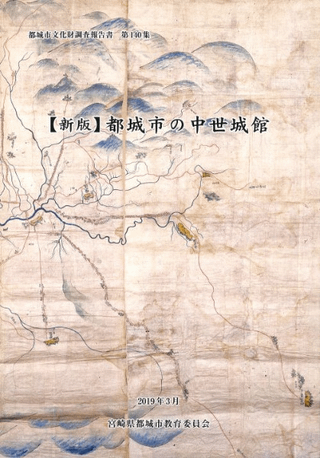 都城市文化財調査報告書　第140集
【新版】都城市の中世城館
2019年3月
宮崎県都城市教育委員会